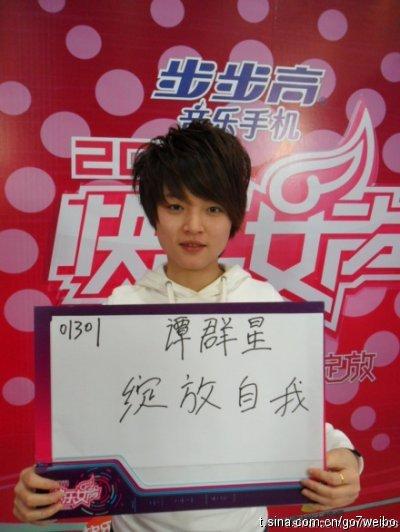 步步高
音乐手机
20
快 女声
绽放
01301 谭群星
绽放自我
t.sina.com.cn/go7weibo